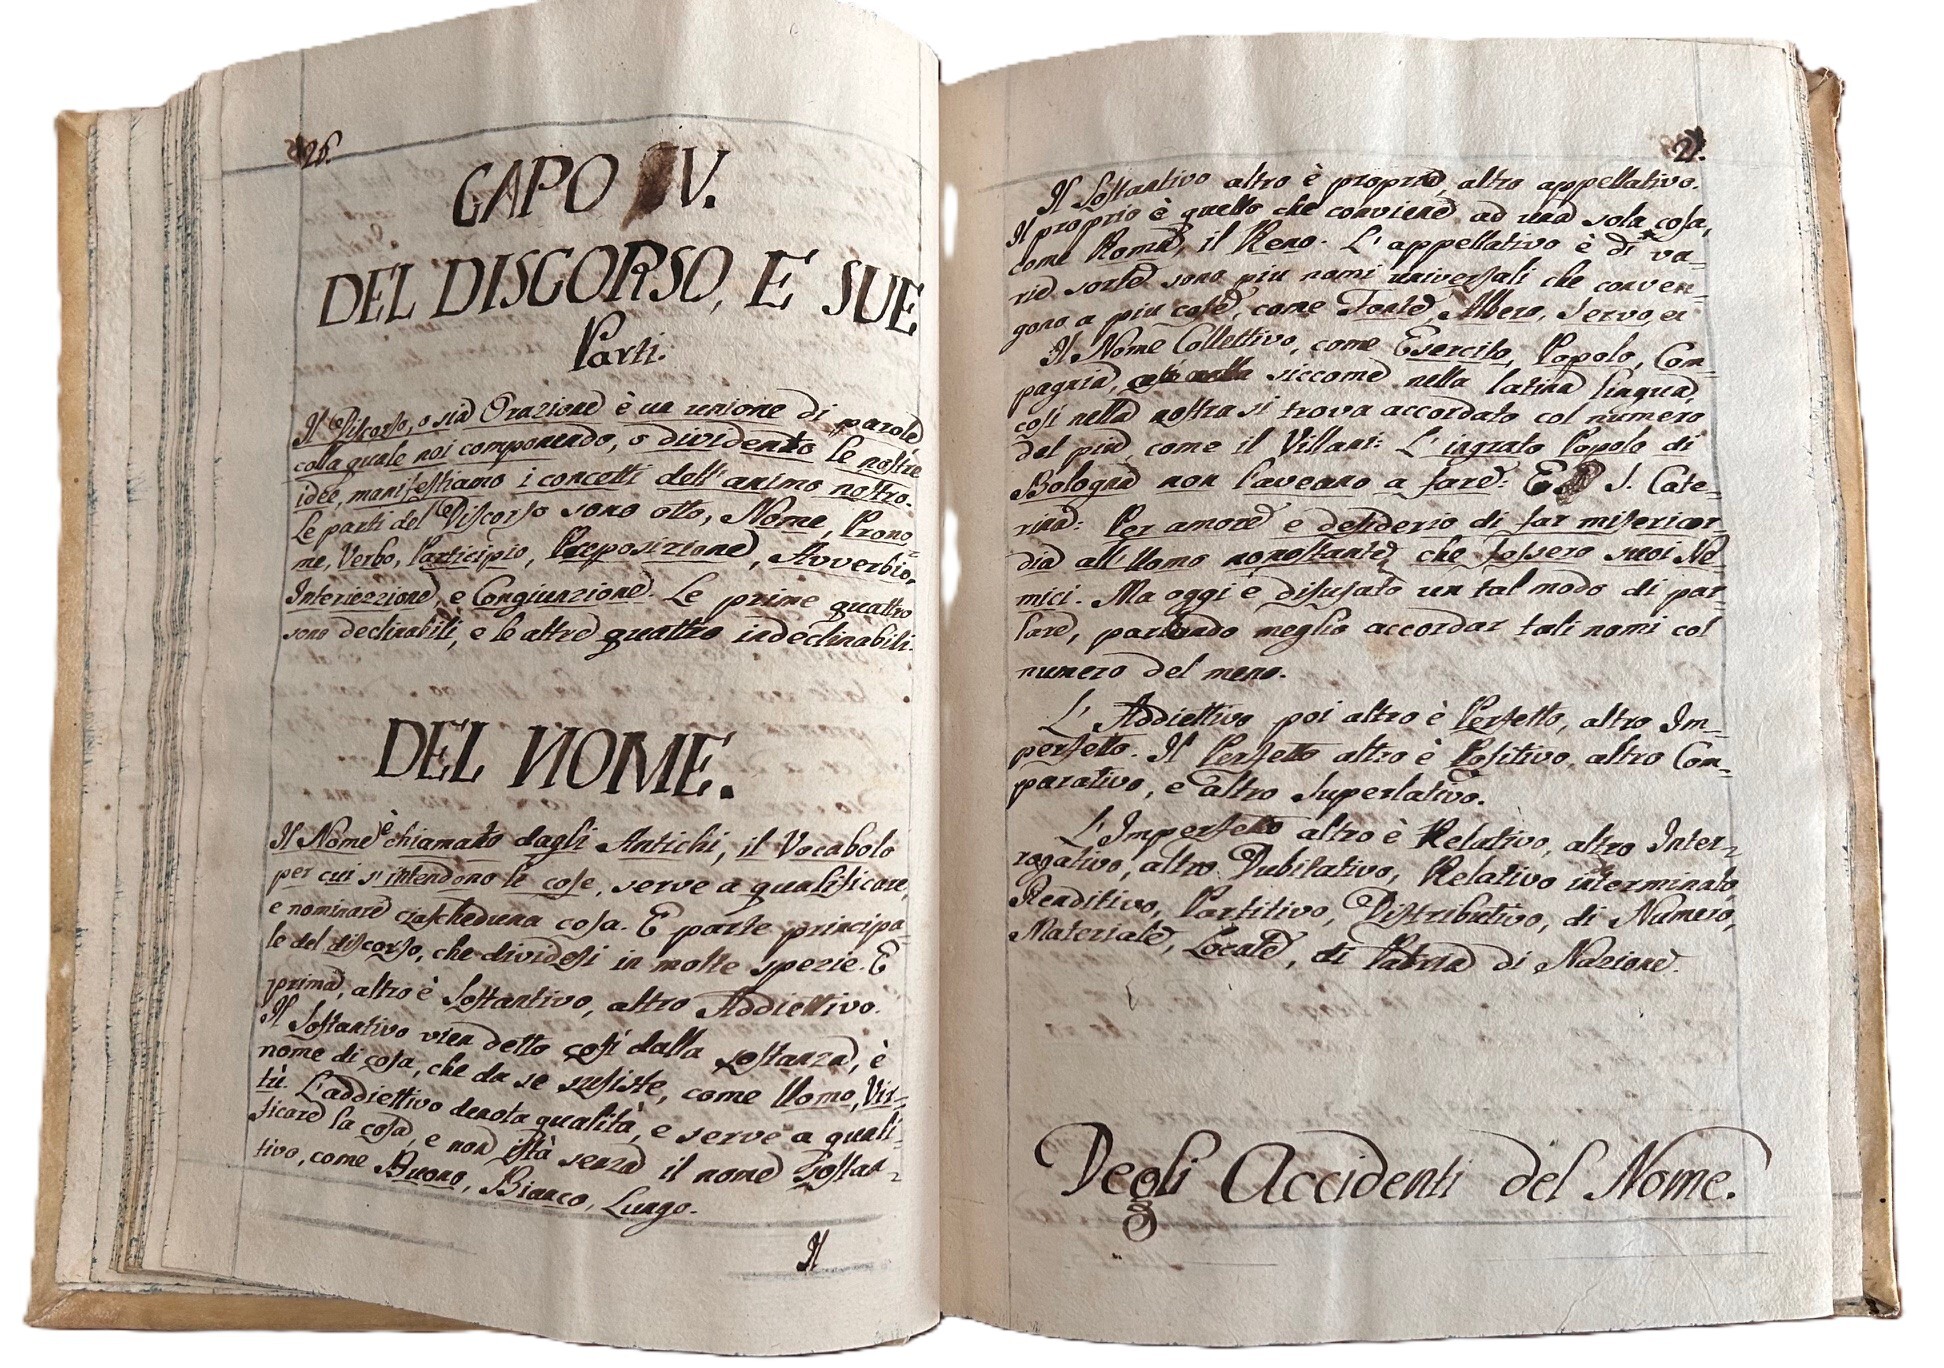 26.
CAPO IV.
DEL DISCORSO, E SUE
Parti.
Il Discorso, o sia Orazione è un unione di parole
colla quale noi componendo, o dividento le nostre
idee, manifestiamo i concetti dell'animo nostro.
Le parti del Discorso sono otto, Nome, Prono-
me, Verbo, Participio, Preposizione, Avverbio,
Interiezzione, e Congiunzione. Le prime quattro
sono declinabili, e le altre quattro indeclinabili.
DEL NOME.
Il Nome è chiamato dagli Antichi, il Vocabolo
per cui s'intendono le cose, serve a qualificare,
e nominare ciascheduna cosa. E parte principa-
le del discorso, che dividesi in molte spezie. E
prima, altro è Sostantivo, altro Addiettivo.
Il Sostantivo vien detto così dalla sostanza, è
nome di cosa, che da se susiste, come Uomo, Vir-
tù. L'addiettivo denota qualità, e serve a quali-
ficare la cosa, e non istà senza il nome Sostan-
tivo, come Buono, Bianco, Lungo.
Il
27.
Il Sostantivo altro è proprio, altro appellativo.
Il proprio è quello che conviene ad una sola cosa,
come Roma, il Reno. L'appellativo è di va-
rie sorte sono piu nomi universali che conven-
gono a piu cose, come Fonte, Albero, Servo, ec
Il Nome Collettivo, come Esercito, Popolo, Com-
pagnia, siccome nella latina lingua,
così nella nostra si trova accordato col numero
del piu, come il Villani: L'ingrato Popolo di
Bologna non l'aveano a fare: E S. Cate-
rina: Per amore e desiderio di far misericor-
dia all'Uomo nonostante, che fossero suoi Ne-
mici. Ma oggi è disusato un tal modo di par-
lare, parlando meglio accordar tali nomi col
numero del meno.
L'Addiettivo poi altro è Perfetto, altro Im-
perfetto. Il Perfetto altro è Positivo, altro Com-
parativo, e altro Superlativo.
L'Imperfetto altro è Relativo, altro Inter-
rogativo, altro Dubitativo, Relativo interminato,
Renditivo, Partitivo, Distributivo, di Numero,
Materiale, Locale, di Patria di Nazione.
Degli Accidenti del Nome.